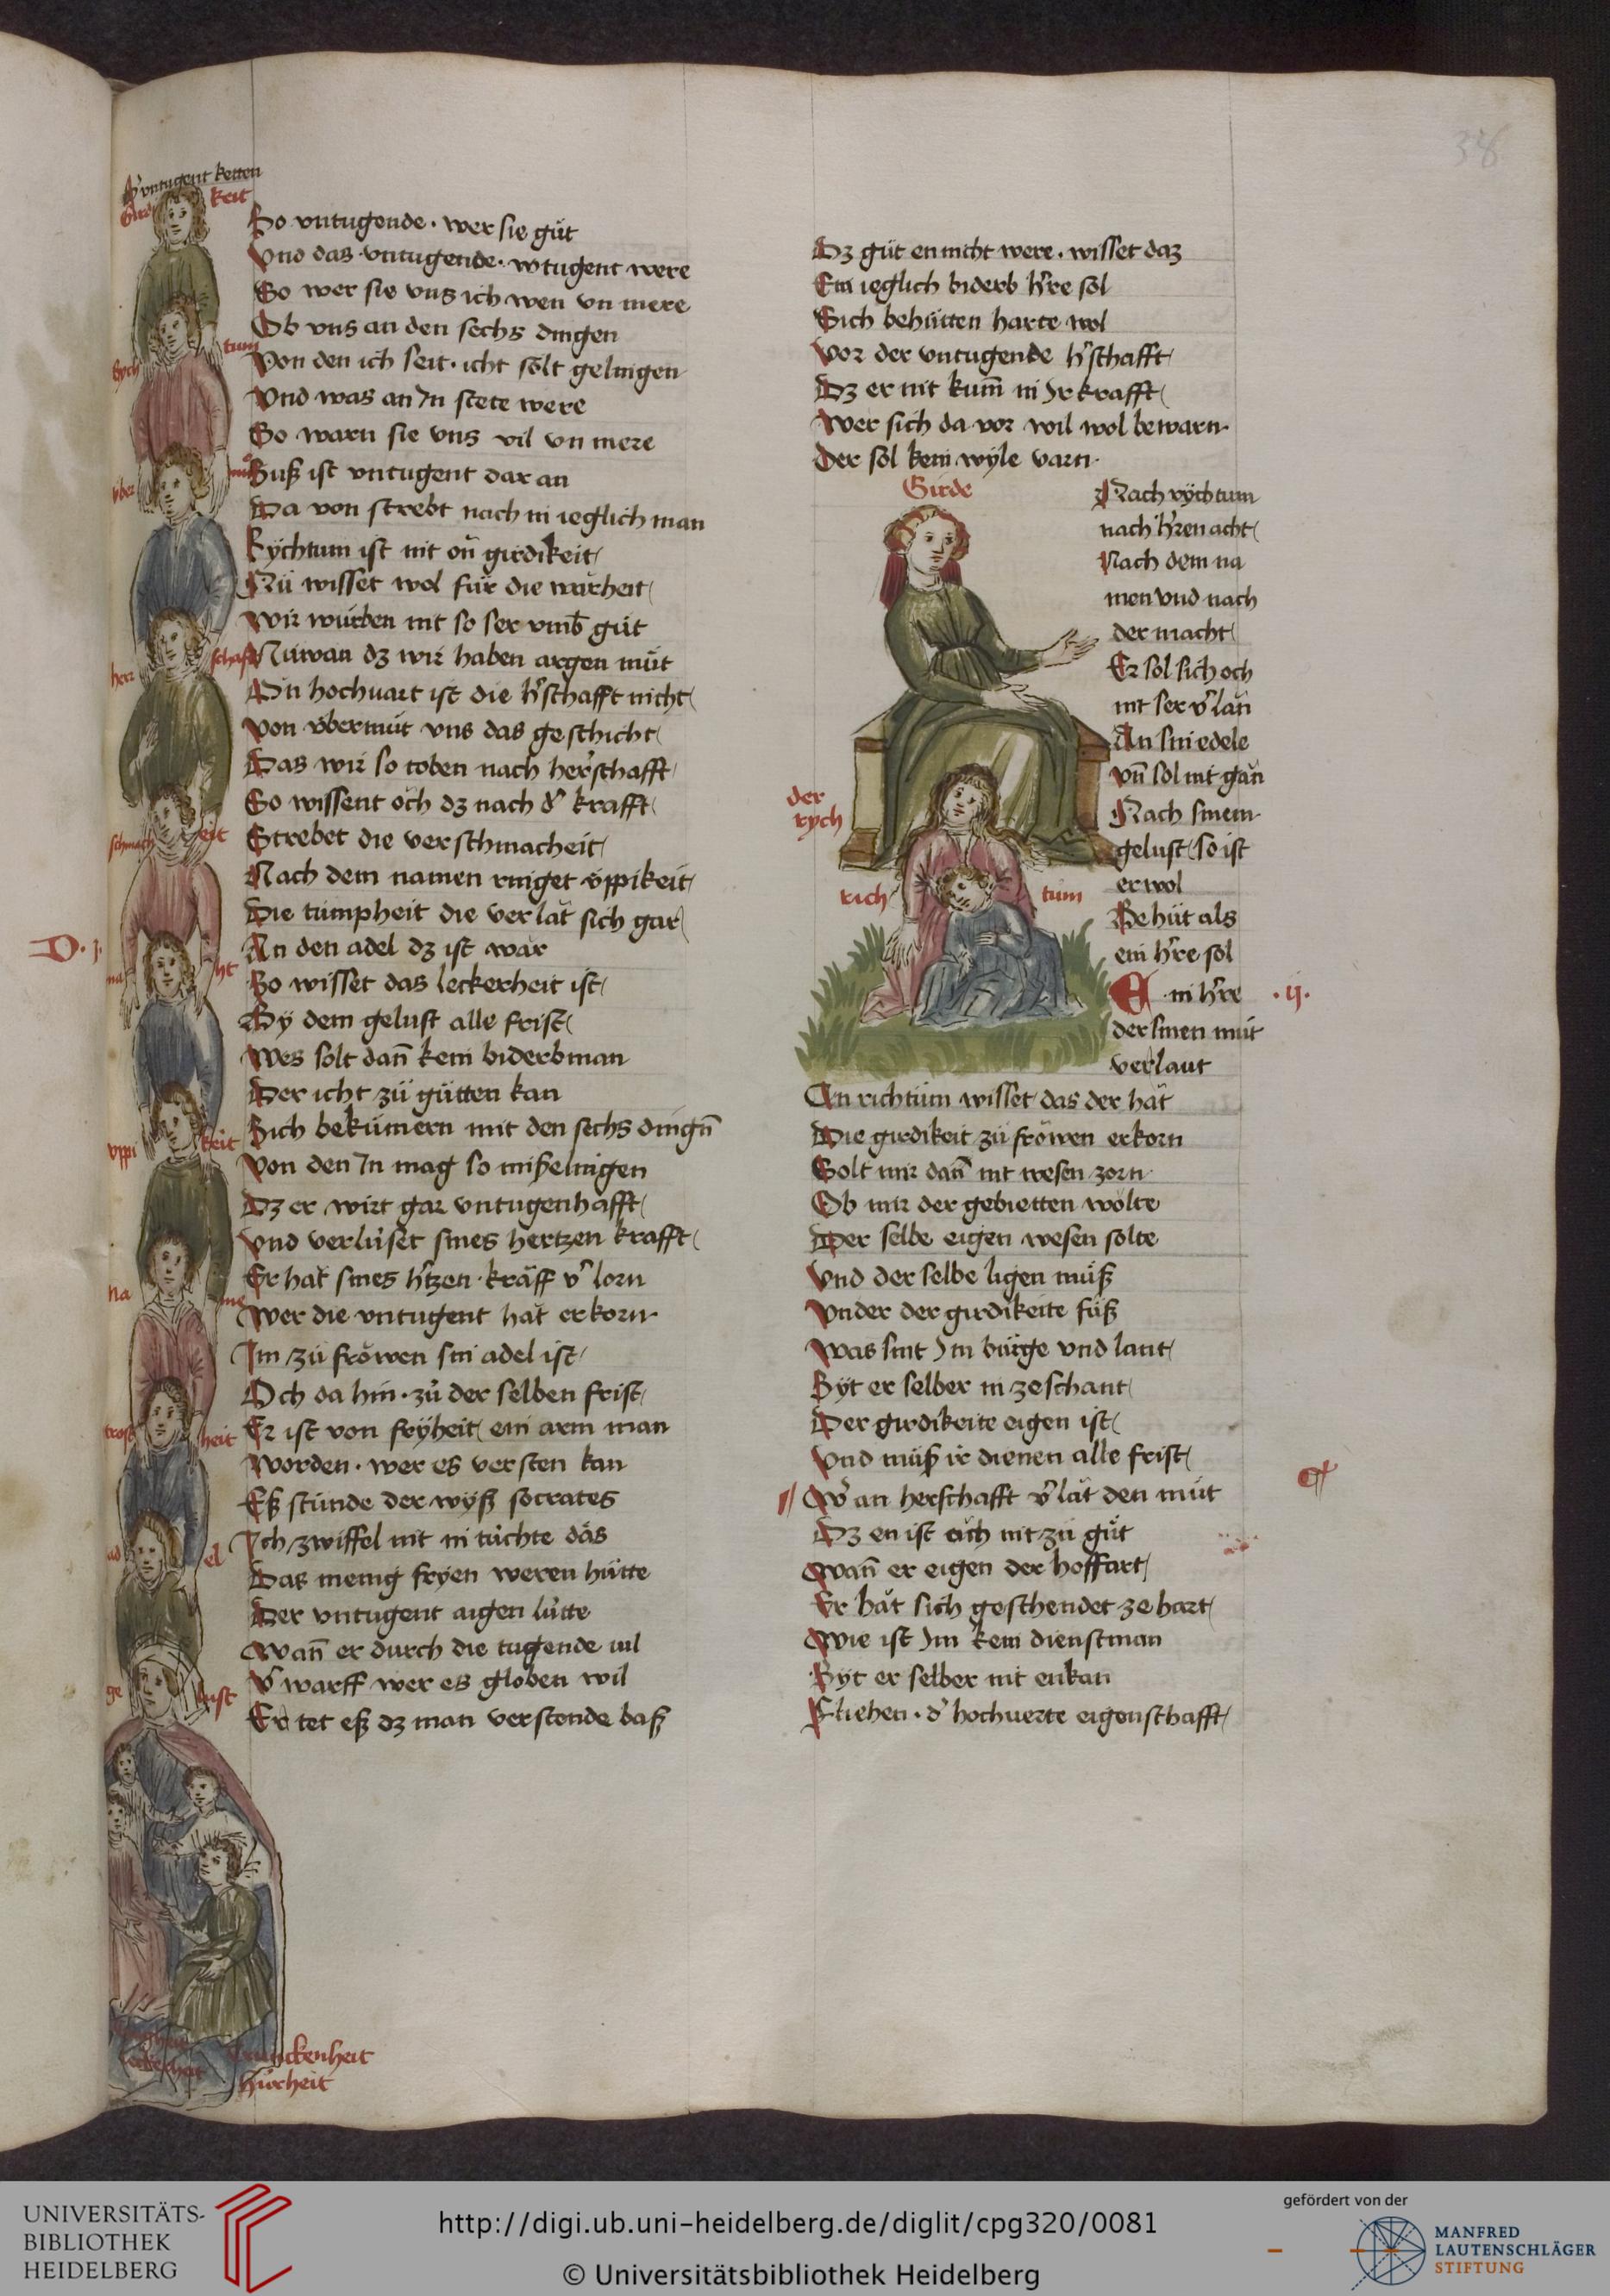 38
Dʼ vntugent ketten
Girdi keit
So vntugende · wer sie gůt
Vnd das vntugende · vntugent were
So wer sie vns ich wen vn mere
Ob vns an den sechs dingen
Von den ich seit · icht sölt gelingen
Vnd was an Jn stete were
So warn sie vns vil vn mere
Suß ist vntugent dar an
Da von strebt nach in ieglich man
Rychtum ist nit on̄ girdikeit
Nů wisset wol für die warheit
Wir wurben nit so ser vmb gůt
Nuwan dz wir haben argen můt
On hochuart ist die hʼschafft nicht
Von vbermůt vns das geschicht
Das wir so toben nach herschafft
So wissent öch dz nach dʼ krafft
Strebet die verschmacheit
Nach dem namen ringet vppikeit
Die tumpheit die verlät sich gar
An den adel dz ist war
So wisset das leckerheit ist
By dem gelust alle frist
Wes solt dan̄ kein biderbman
Der icht zů gütten kan
Sich bekümern mit den sechs dingn̄
Von den Jn mag so mißelingen
Dz er wirt gar vntugenhafft
Vnd verlüset sines hertzen krafft
Er hat sines hʼtzen · kräff vʼlorn
Wer die vntugent hat erkorn
Im zů fröwen sin adel ist
Och da hin · zů der selben frist
Er ist von fryheit ein arm man
Worden · wer es versten kan
Eß stünde der wyß socrates
Ich zwiffel nit in tüchte däs
Das menig fryen weren hütte
Der vntugent aigen lütte
Wan̄ er durch die tugende vil
Vʼwarff wer es globen wil
Er tet eß dz man verstende baß
Rych tum
vber můt
herr schafft
schmach eit
D · j ·
ma ht
vppi keit
na me
trost heit
ad el
ge lust
leckerheit
Trunckenheit
Hurheit
Dz gůt en nicht were · wisset daz
Ein ieglich biderb hʼre sol
Sich behütten harte wol
Vor der vntugende hʼschafft
Dz er nit kum̄ in Jr krafft
Wer sich da vor wil wol bewarn
Der sol kein wyle varn
Girde
Nach rychtum
nach hʼren acht
Nach dem na
men vnd nach
der macht
Er sol sich och
nit ser vʼlan
An sin edele
vn̄ sol nit gän
Nach sinem
gelust so ist
er wol
Behüt als
ein hʼre sol
der
rych
rich tum
Ein hʼre · ij ·
der sinen můt
verlaut
An richtům wisset das der hät
Die girdikeit zů fröwen erkorn
Solt mir dan̄ nit wesen zorn
Ob mir der gebietten wolte
Der selbe eigen wesen solte
Vnd der selbe ligen můß
Vnder der girdikeite fůß
Was sint Jm bürge vnd lant
Syt er selber in ze schant
Der girdikeite eigen ist
Vnd můß ir dienen alle frist
Wʼ an herschafft vʼlät den můt
Dz en ist öch nit zů gůt
Wan̄ er eigen der hoffart
Er hät sich geschendet ze hart
Wie ist Jm kein dienstman
Syt er selber nit enkan
Fliehen · dʼ hochuerte eigenschafft
UNIVERSITÄTS-
BIBLIOTHEK
HEIDELBERG
http://digi.ub.uni-heidelberg.de/diglit/cpg320/0081
© Universitätsbibliothek Heidelberg
gefördert von der
MANFRED
LAUTENSCHLÄGER
STIFTUNG